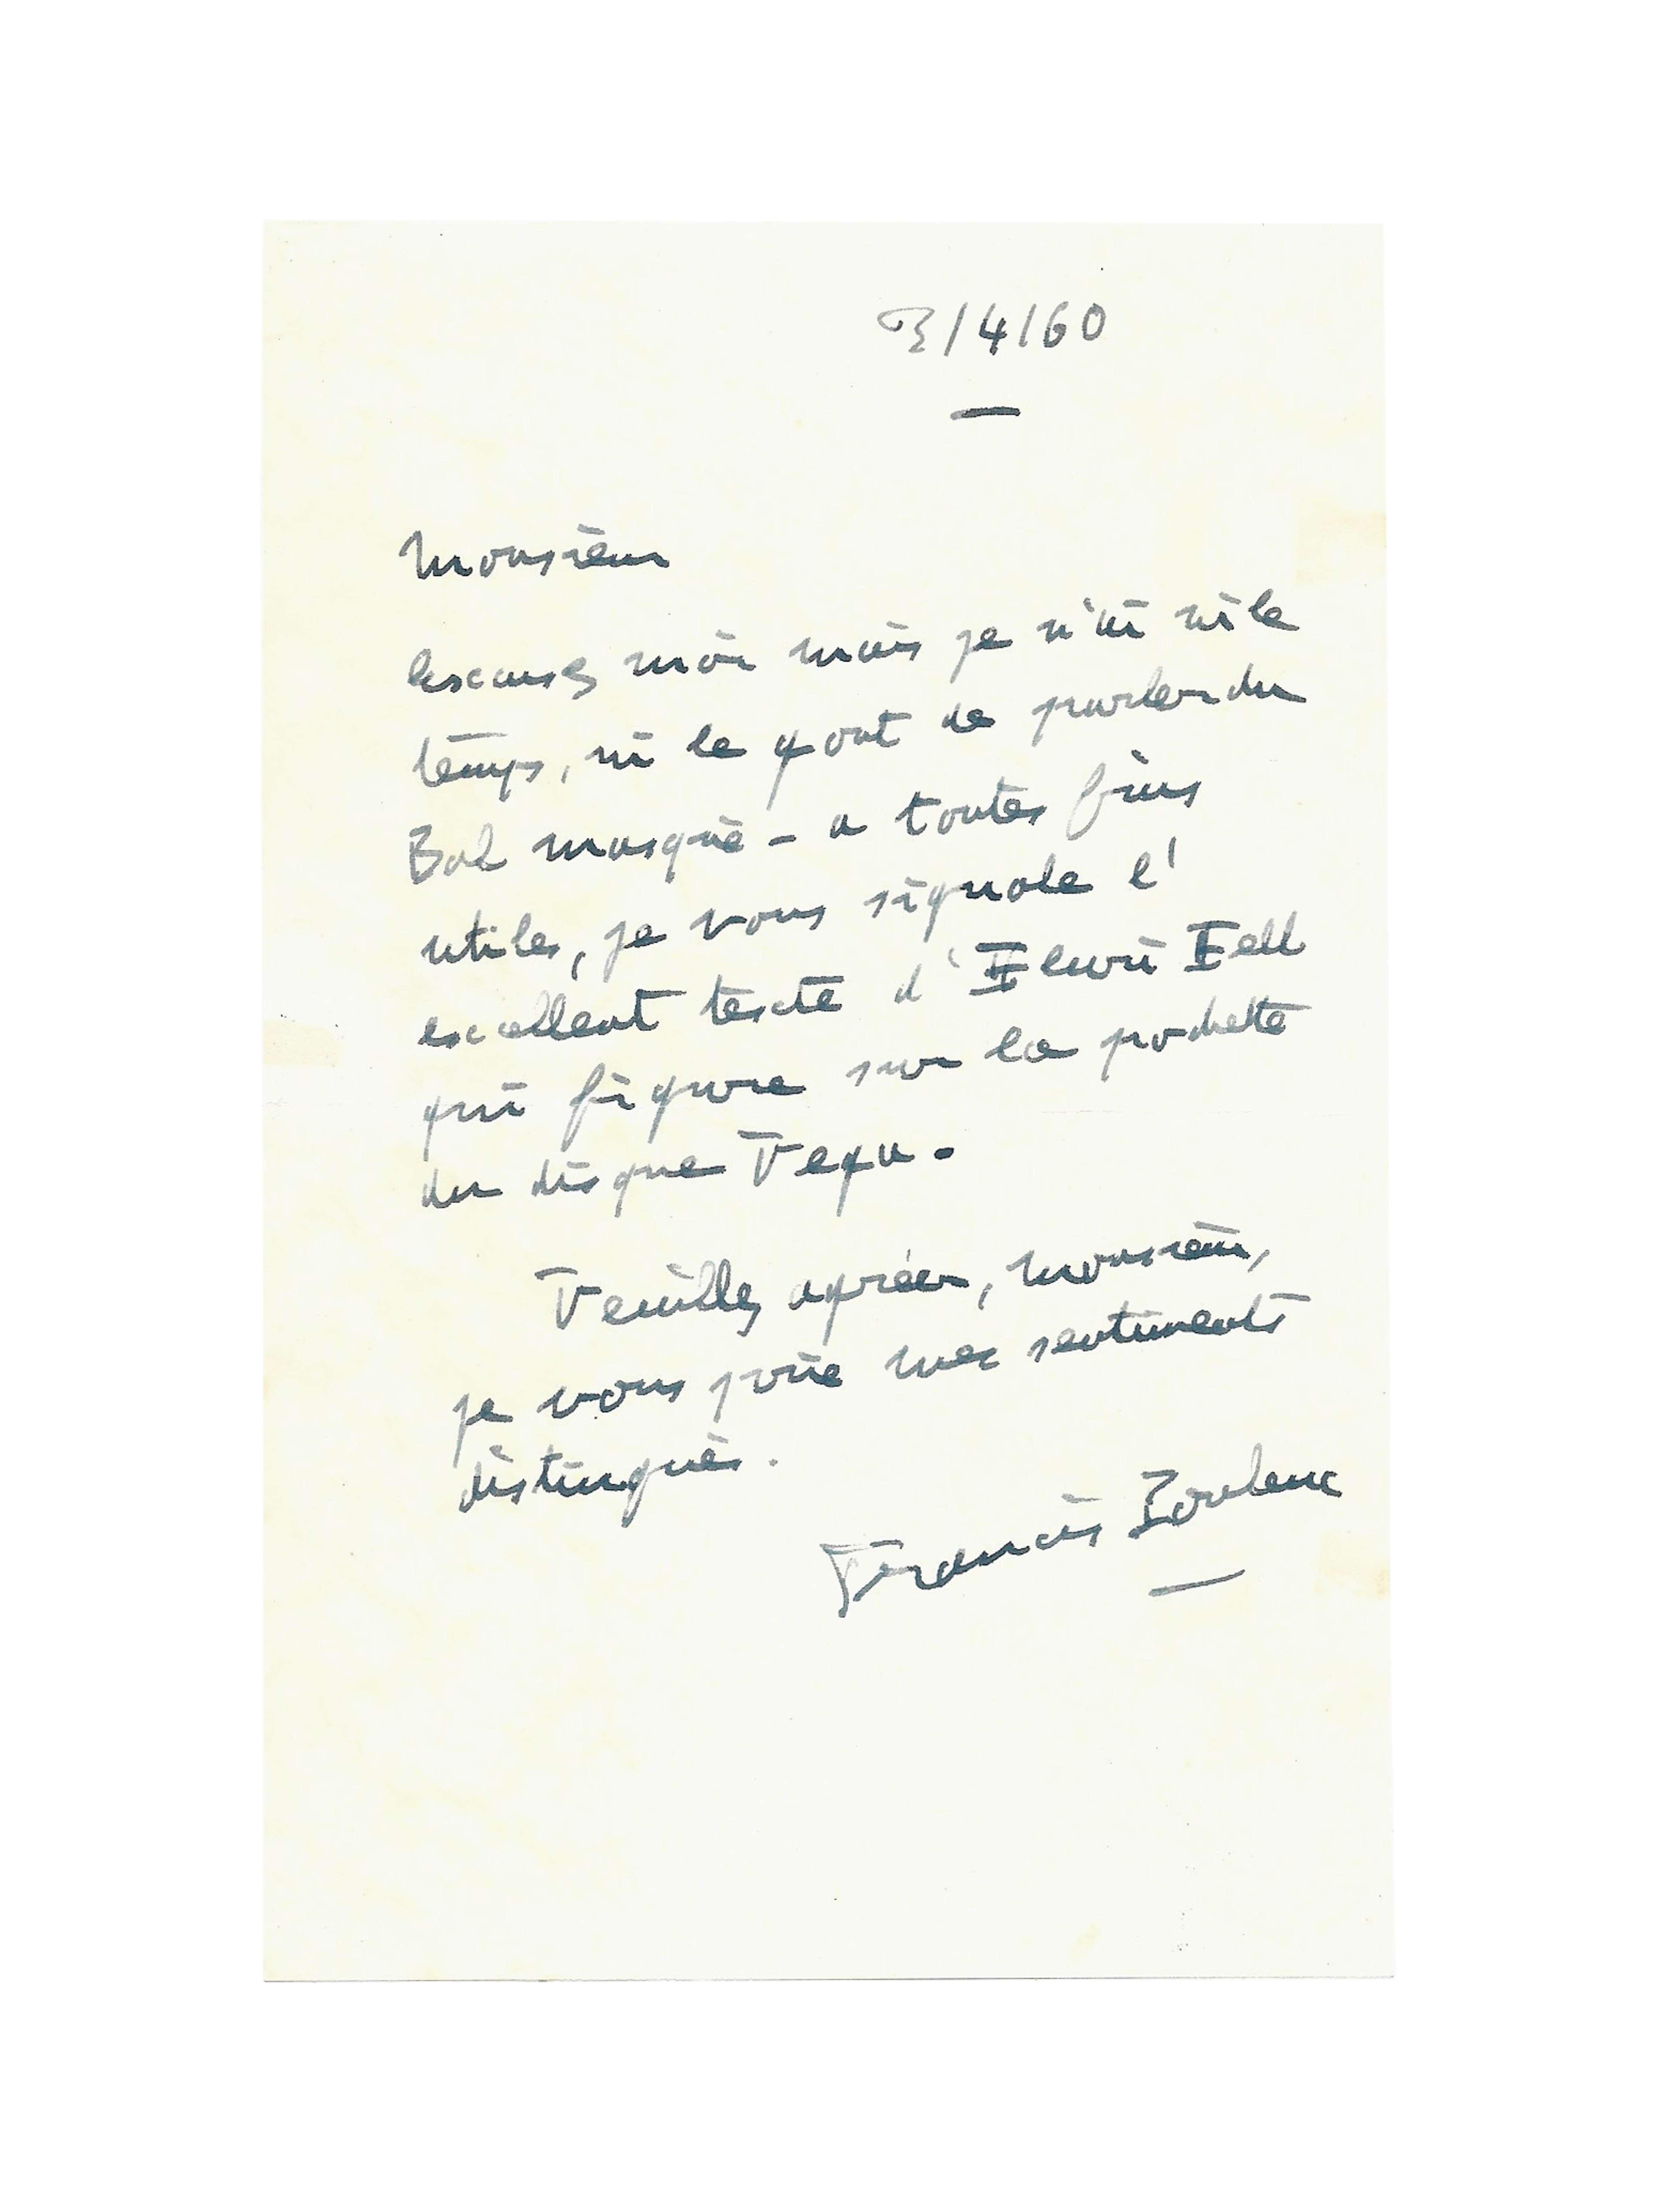 3/4/60
Monsieur
excusez moi mais je n'ai ni le
temps, ni le gout de parler du
Bal masqué - a toutes fins
utiles, je vous signale l'
excellent texte d'Henri Hell
qui figure sur la pochette
du disque Vega.
Veuillez agréer, monsieur,
je vous prie mes sentiments
distingués.
Francis Poulenc